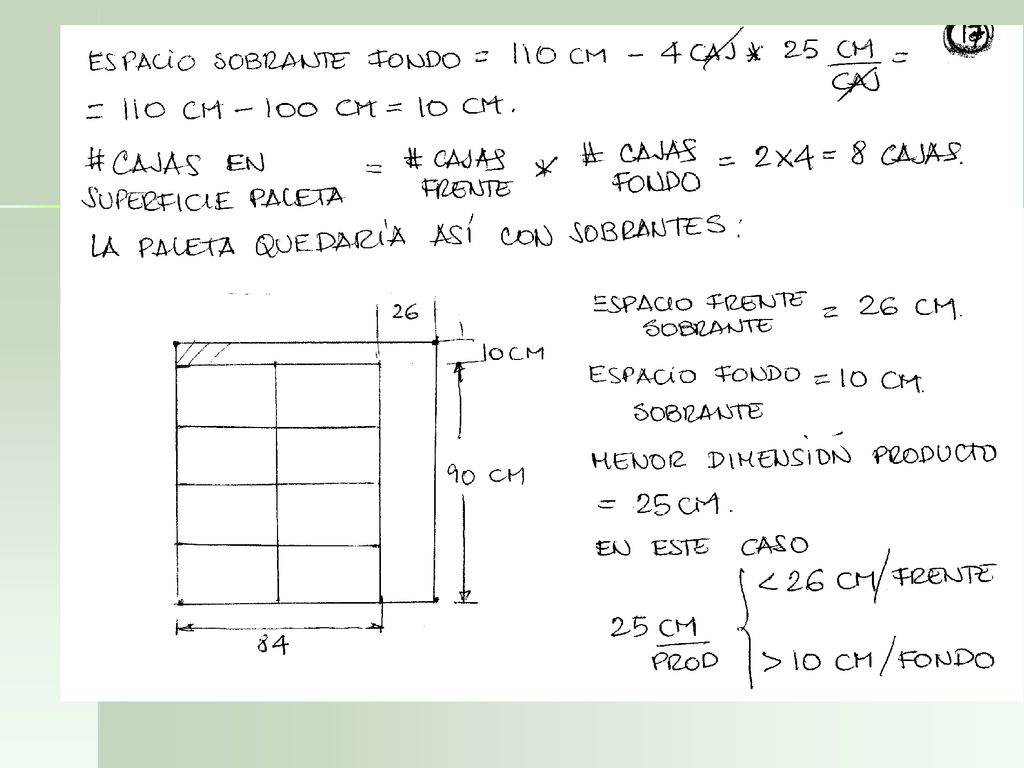 17
ESPACIO SOBRANTE FONDO = 110 CM - 4 CAJ * 25 CM/CAJ =
= 110 CM - 100 CM = 10 CM.
# CAJAS EN SUPERFICIE PALETA = # CAJAS FRENTE * # CAJAS FONDO = 2X4 = 8 CAJAS.
LA PALETA QUEDARÍA ASÍ CON SOBRANTES:
26
10 CM
90 CM
84
ESPACIO FRENTE = 26 CM.
SOBRANTE
ESPACIO FONDO = 10 CM.
SOBRANTE
MENOR DIMENSIÓN PRODUCTO
= 25 CM.
EN ESTE CASO
25 CM/PROD
< 26 CM/FRENTE
> 10 CM/FONDO